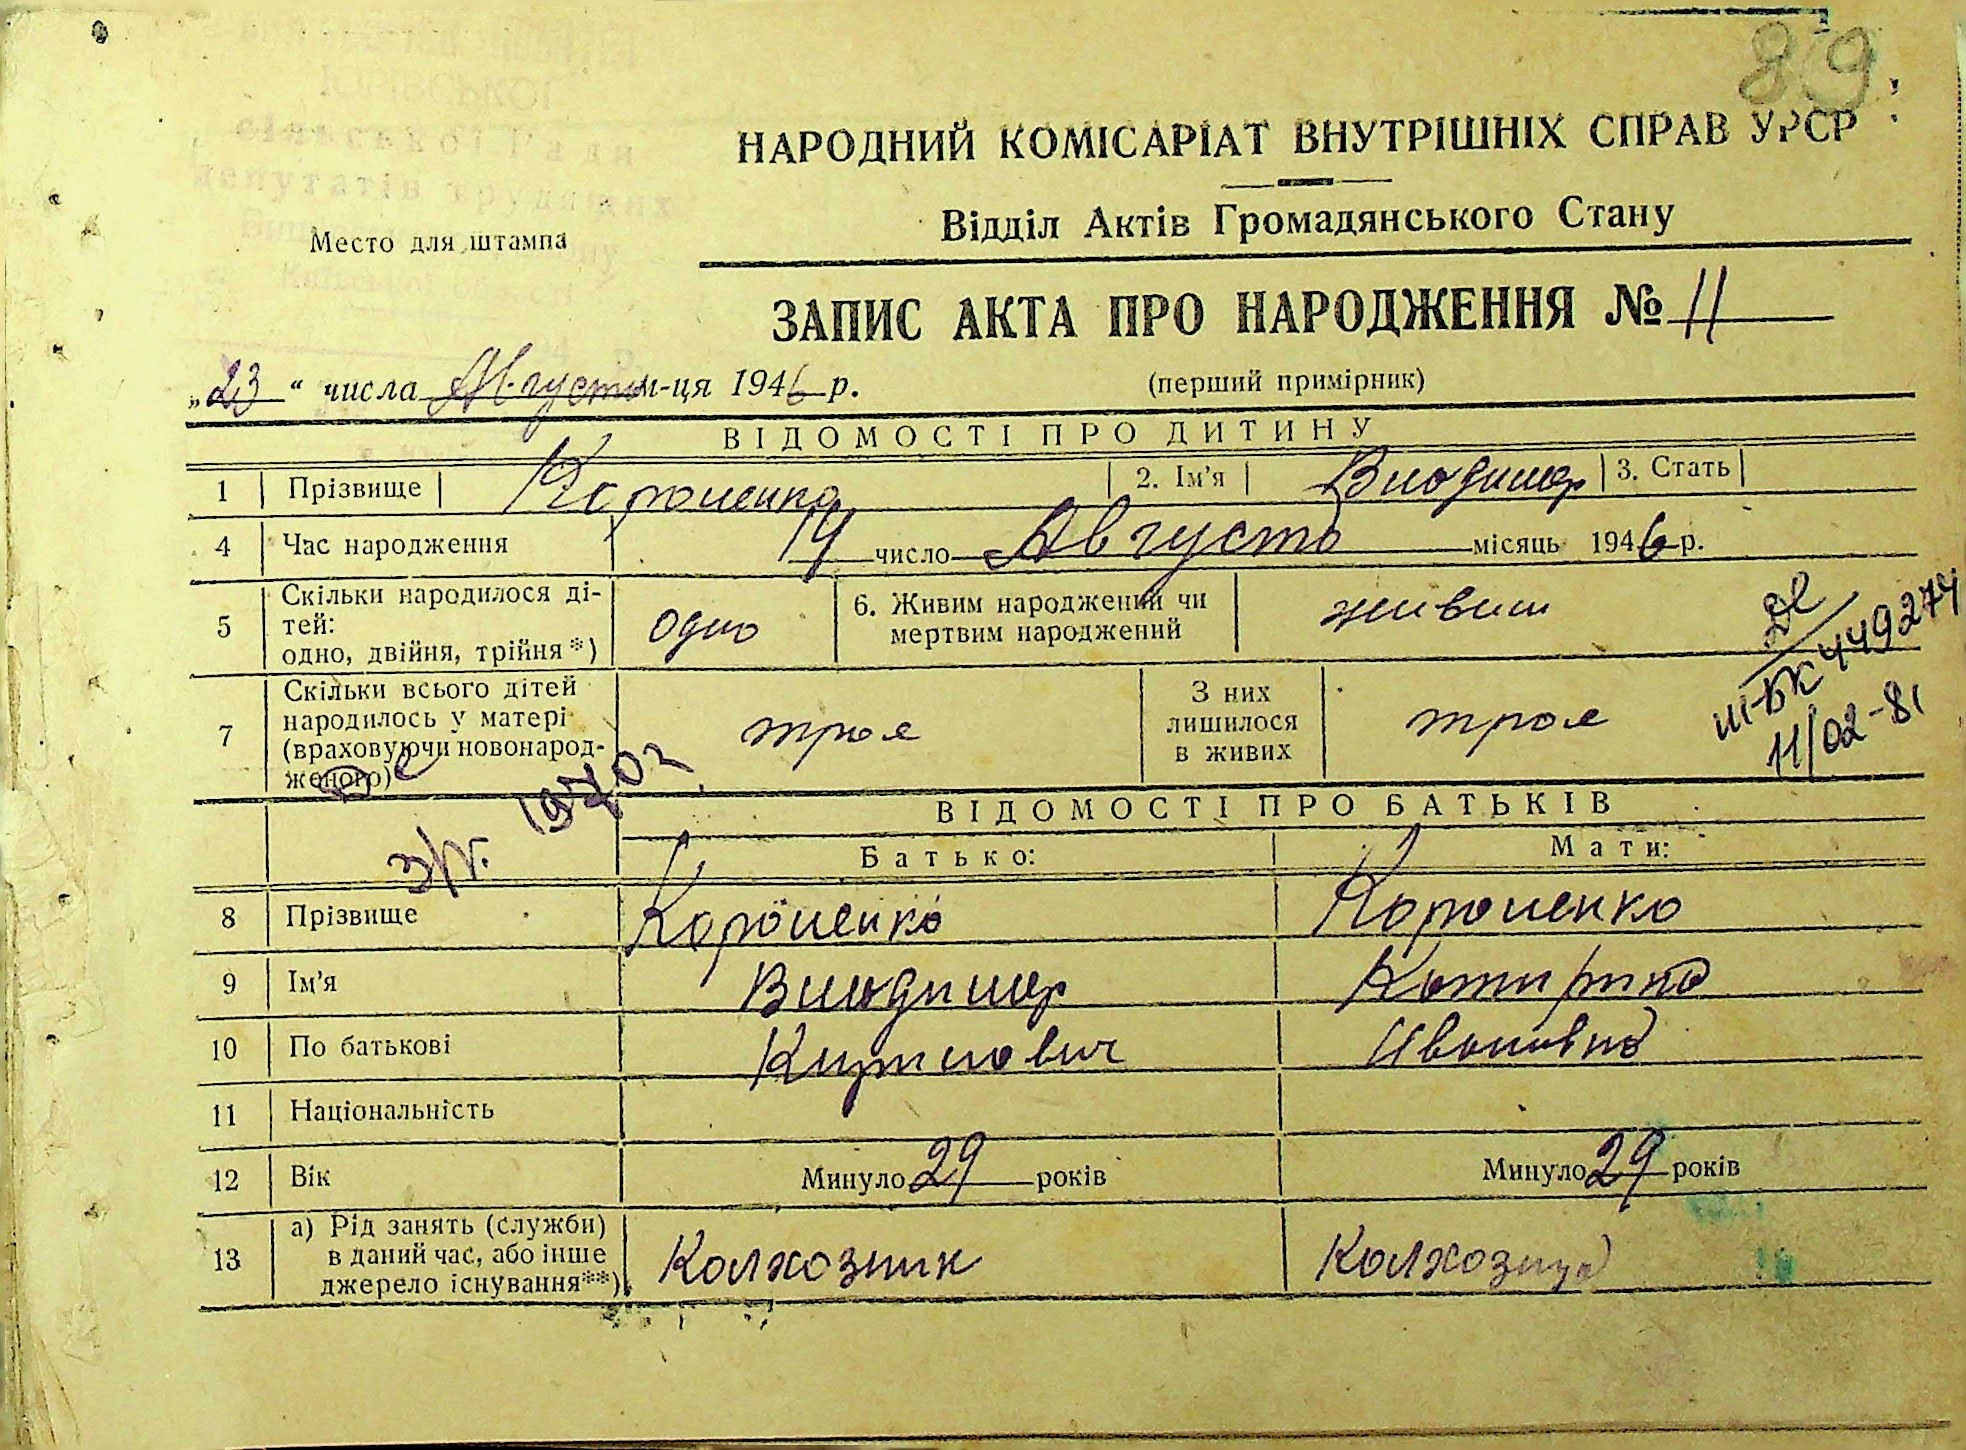 89
НАРОДНИЙ КОМІСАРІАТ ВНУТРІШНІХ СПРАВ УРСР
Відділ Актів Громадянського Стану
Место для штампа
ЮРІВСЬКОЇ
сільської Ради
депутатів трудящих
Київської області
ЗАПИС АКТА ПРО НАРОДЖЕННЯ № 11
„23“ числа Августа м-ця 1946 р. (перший примірник)
ВІДОМОСТІ ПРО ДИТИНУ
1 Прізвище Короленко 2. Ім'я Владимир 3. Стать
4 Час народження 14 число Августа місяць 1946 р.
5 Скільки народилося дітей: одно, двійня, трійня*) одно 6. Живим народжений чи мертвим народжений живим
7 Скільки всього дітей народилось у матері (враховуючи новонародженого) трое З них лишилося в живих трое
III-БК 449274
11/02-81
1970г
ВІДОМОСТІ ПРО БАТЬКІВ
Батько: Мати:
8 Прізвище Короленко Короленко
9 Ім'я Владимир Катирина
10 По батькові Ивановна
11 Національність
12 Вік Минуло 29 років Минуло 29 років
13 а) Рід занять (служби) в даний час, або інше джерело існування**) Колхозник Колхозница